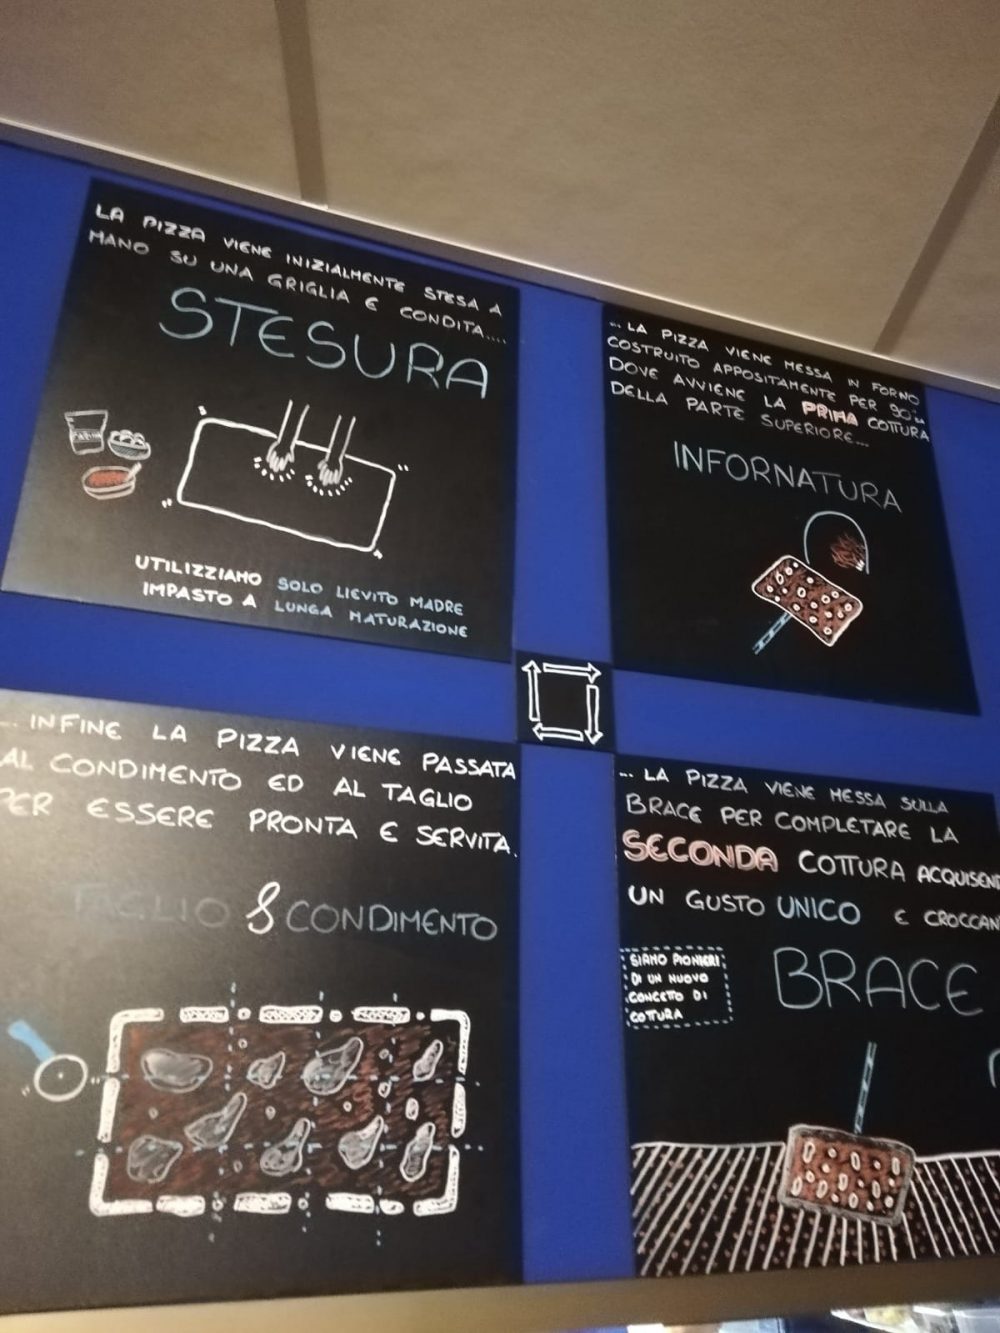 LA PIZZA VIENE INIZIALMENTE STESA A
MANO SU UNA GRIGLIA E CONDITA....
STESURA
UTILIZZIAMO SOLO LIEVITO MADRE
IMPASTO A LUNGA MATURAZIONE
... LA PIZZA VIENE MESSA IN FORNO
COSTRUITO APPOSITAMENTE PER 90"
DOVE AVVIENE LA PRIMA COTTURA
DELLA PARTE SUPERIORE...
INFORNATURA
... LA PIZZA VIENE MESSA SULLA
BRACE PER COMPLETARE LA
SECONDA COTTURA ACQUISEND
UN GUSTO UNICO E CROCCAN
SIAMO PIONIERI
DI UN NUOVO
CONCETTO DI
COTTURA
BRACE
... INFINE LA PIZZA VIENE PASSATA
AL CONDIMENTO ED AL TAGLIO
PER ESSERE PRONTA E SERVITA.
TAGLIO & CONDIMENTO